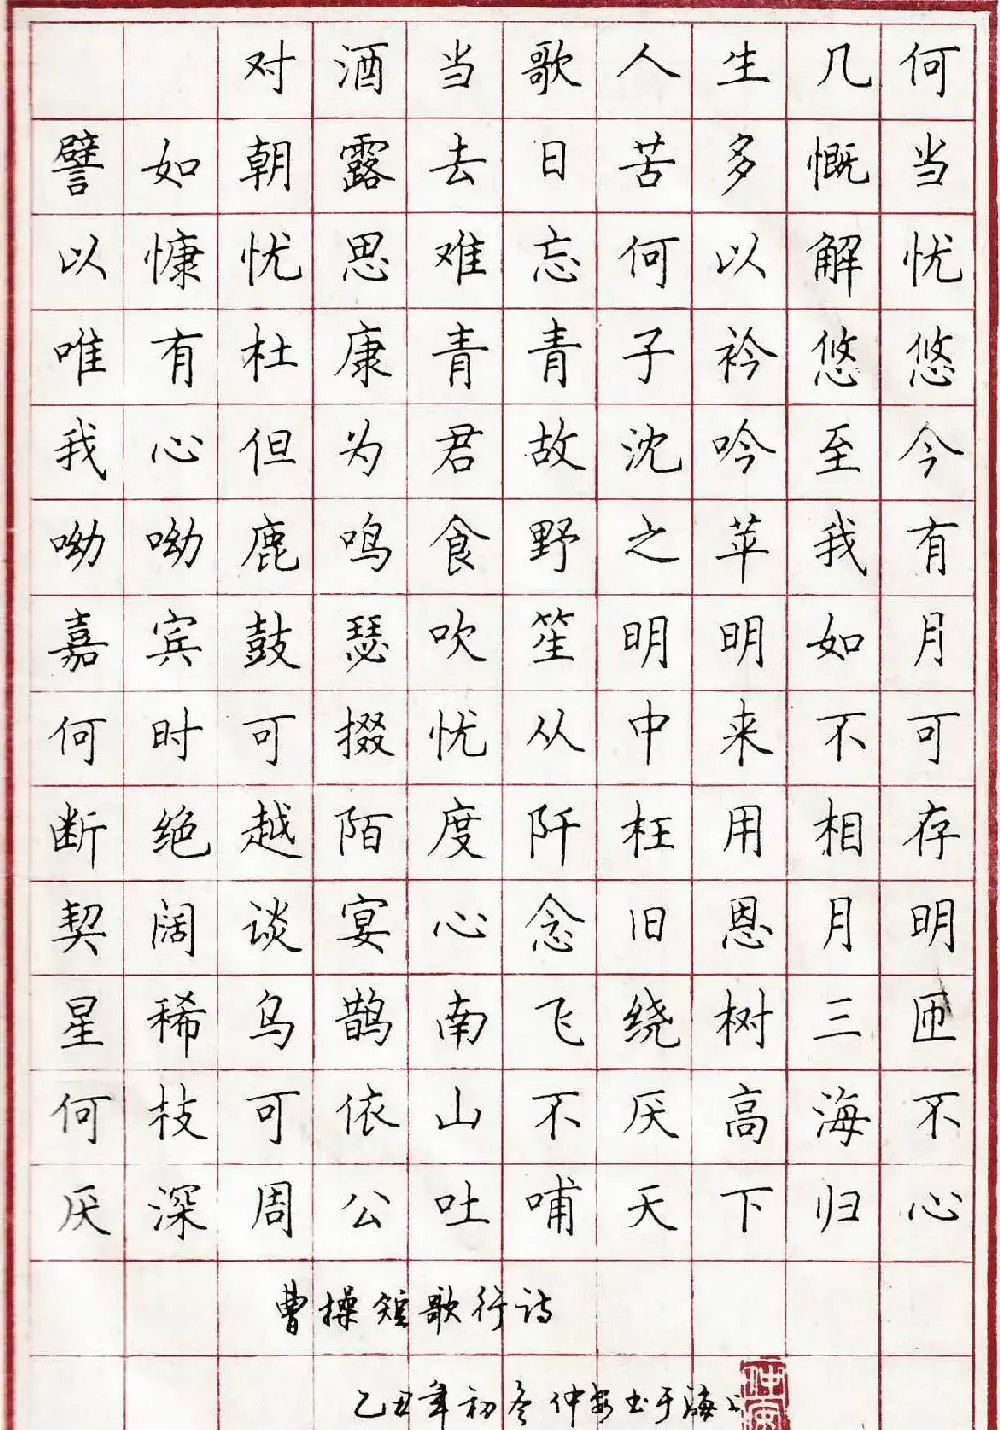 对酒当歌人生几何
譬如朝露去日苦多慨当
以慷忧思难忘何以解忧
唯有杜康青青子衿悠悠
我心但为君故沈吟至今
呦呦鹿鸣食野之苹我有
嘉宾鼓瑟吹笙明明如月
何时可掇忧从中来不可
断绝越陌度阡枉用相存
契阔谈宴心念旧恩月明
星稀乌鹊南飞绕树三匝
何枝可依山不厌高海不
厌深周公吐哺天下归心
曹操短歌行诗
乙丑年初冬仲安书于海上
仲安